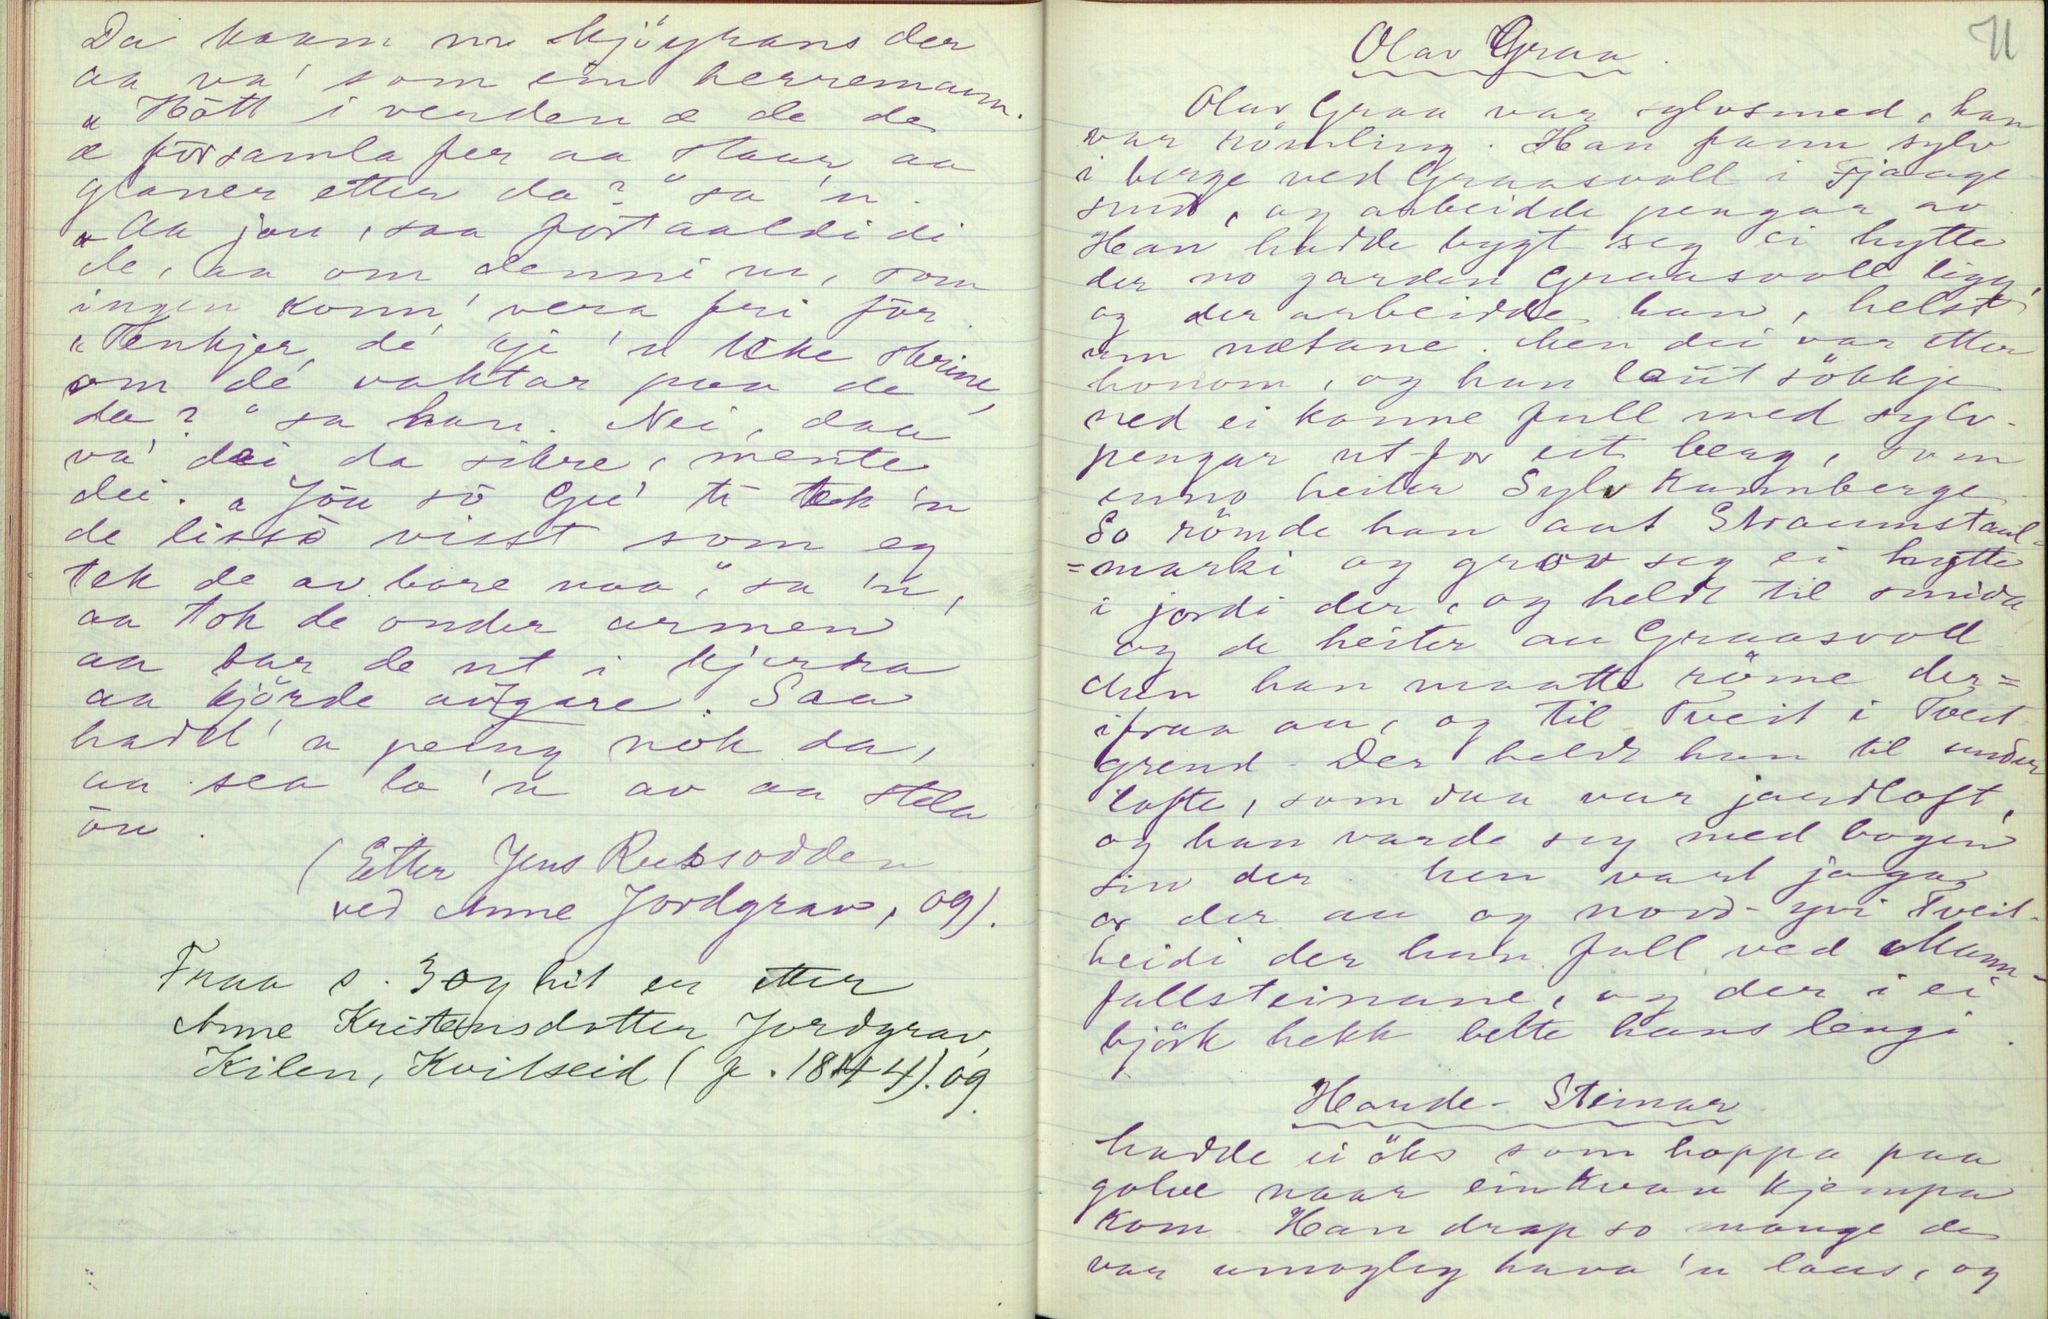 Da kaam nr kjöyrans der
aa va' som ein herremann.
„Hött i verden æ de de
æ församla fer aa staar aa
glaner etter da?" sa 'n.
„Aa jau, saa fortaaldi di
de, aa om denni nr, som
ingen konn' vera fri för.
„Tenkjer dé 'n ikke skrine,
om dé vaktar paa de
da?" sa han. Nei, daa
va' dei da sikre, mente
dei. „Jöu sö Gu' ti tek 'n
de lissö visst som eg
tek de av bore naa," sa 'n,
aa tok de onder armen
aa bar de ut i kjerra
aa kjörde avgare. Saa
hadd' 'n peing nok da,
aa sea la 'n av aa stela
öu.
(Etter Jens Russodden
ved Anne Jordgrav, og).
Fraa s. 3 og hit er etter
Anne Kristensdotter Jordgrav,
Kilen, Kvitseid (f. 1844). og.
11
Olav Graa.
Olav Graa var sylvsmed, han
var römling. Han fann sylv
i berge ved Graasvoll i Fjaage
sund, og arbeidde pengar av
Han hadde bygt seg ei hytte
der no garden Graasvoll ligg,
og der arbeidde han, helst
um nætane. Men dei var etter
honom, og han laut sökkje
ned ei kanne full med sylv-
pengar utfor eit berg, som
enno heiter Sylvkannberge
So römde han aat Straumstaul-
=marki og grov seg ei hytte
i jordi der, og heldt til smida
og de heiter au Graasvoll
Men han maatte röme der=
ifraa au, og til Tveit i Tveit
grend. Der heldt han til under
lofte, som daa var jordloft,
og han varde seg med bogen
sin der. Men vart jaga
or der au og nord-yvi Tveit-
heidi der han fall ved Mann-
fallsteinane, og der i ei
björk hekk belte hans lengi.
Horde-Steinar
hadde ei öks som hoppa paa
golve naar einkvan kjempa
kom. Han drap so mange de
var umogleg hava 'n laus, og